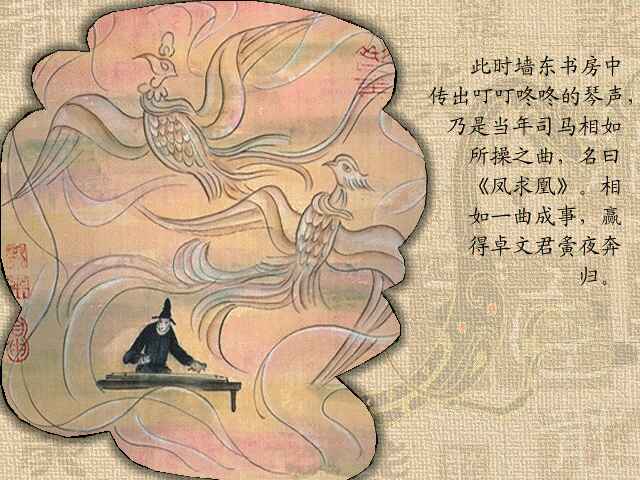 此时墙东书房中
传出叮叮咚咚的琴声，
乃是当年司马相如
所操之曲，名曰
《凤求凰》。相
如一曲成事，赢
得卓文君夤夜奔
归。